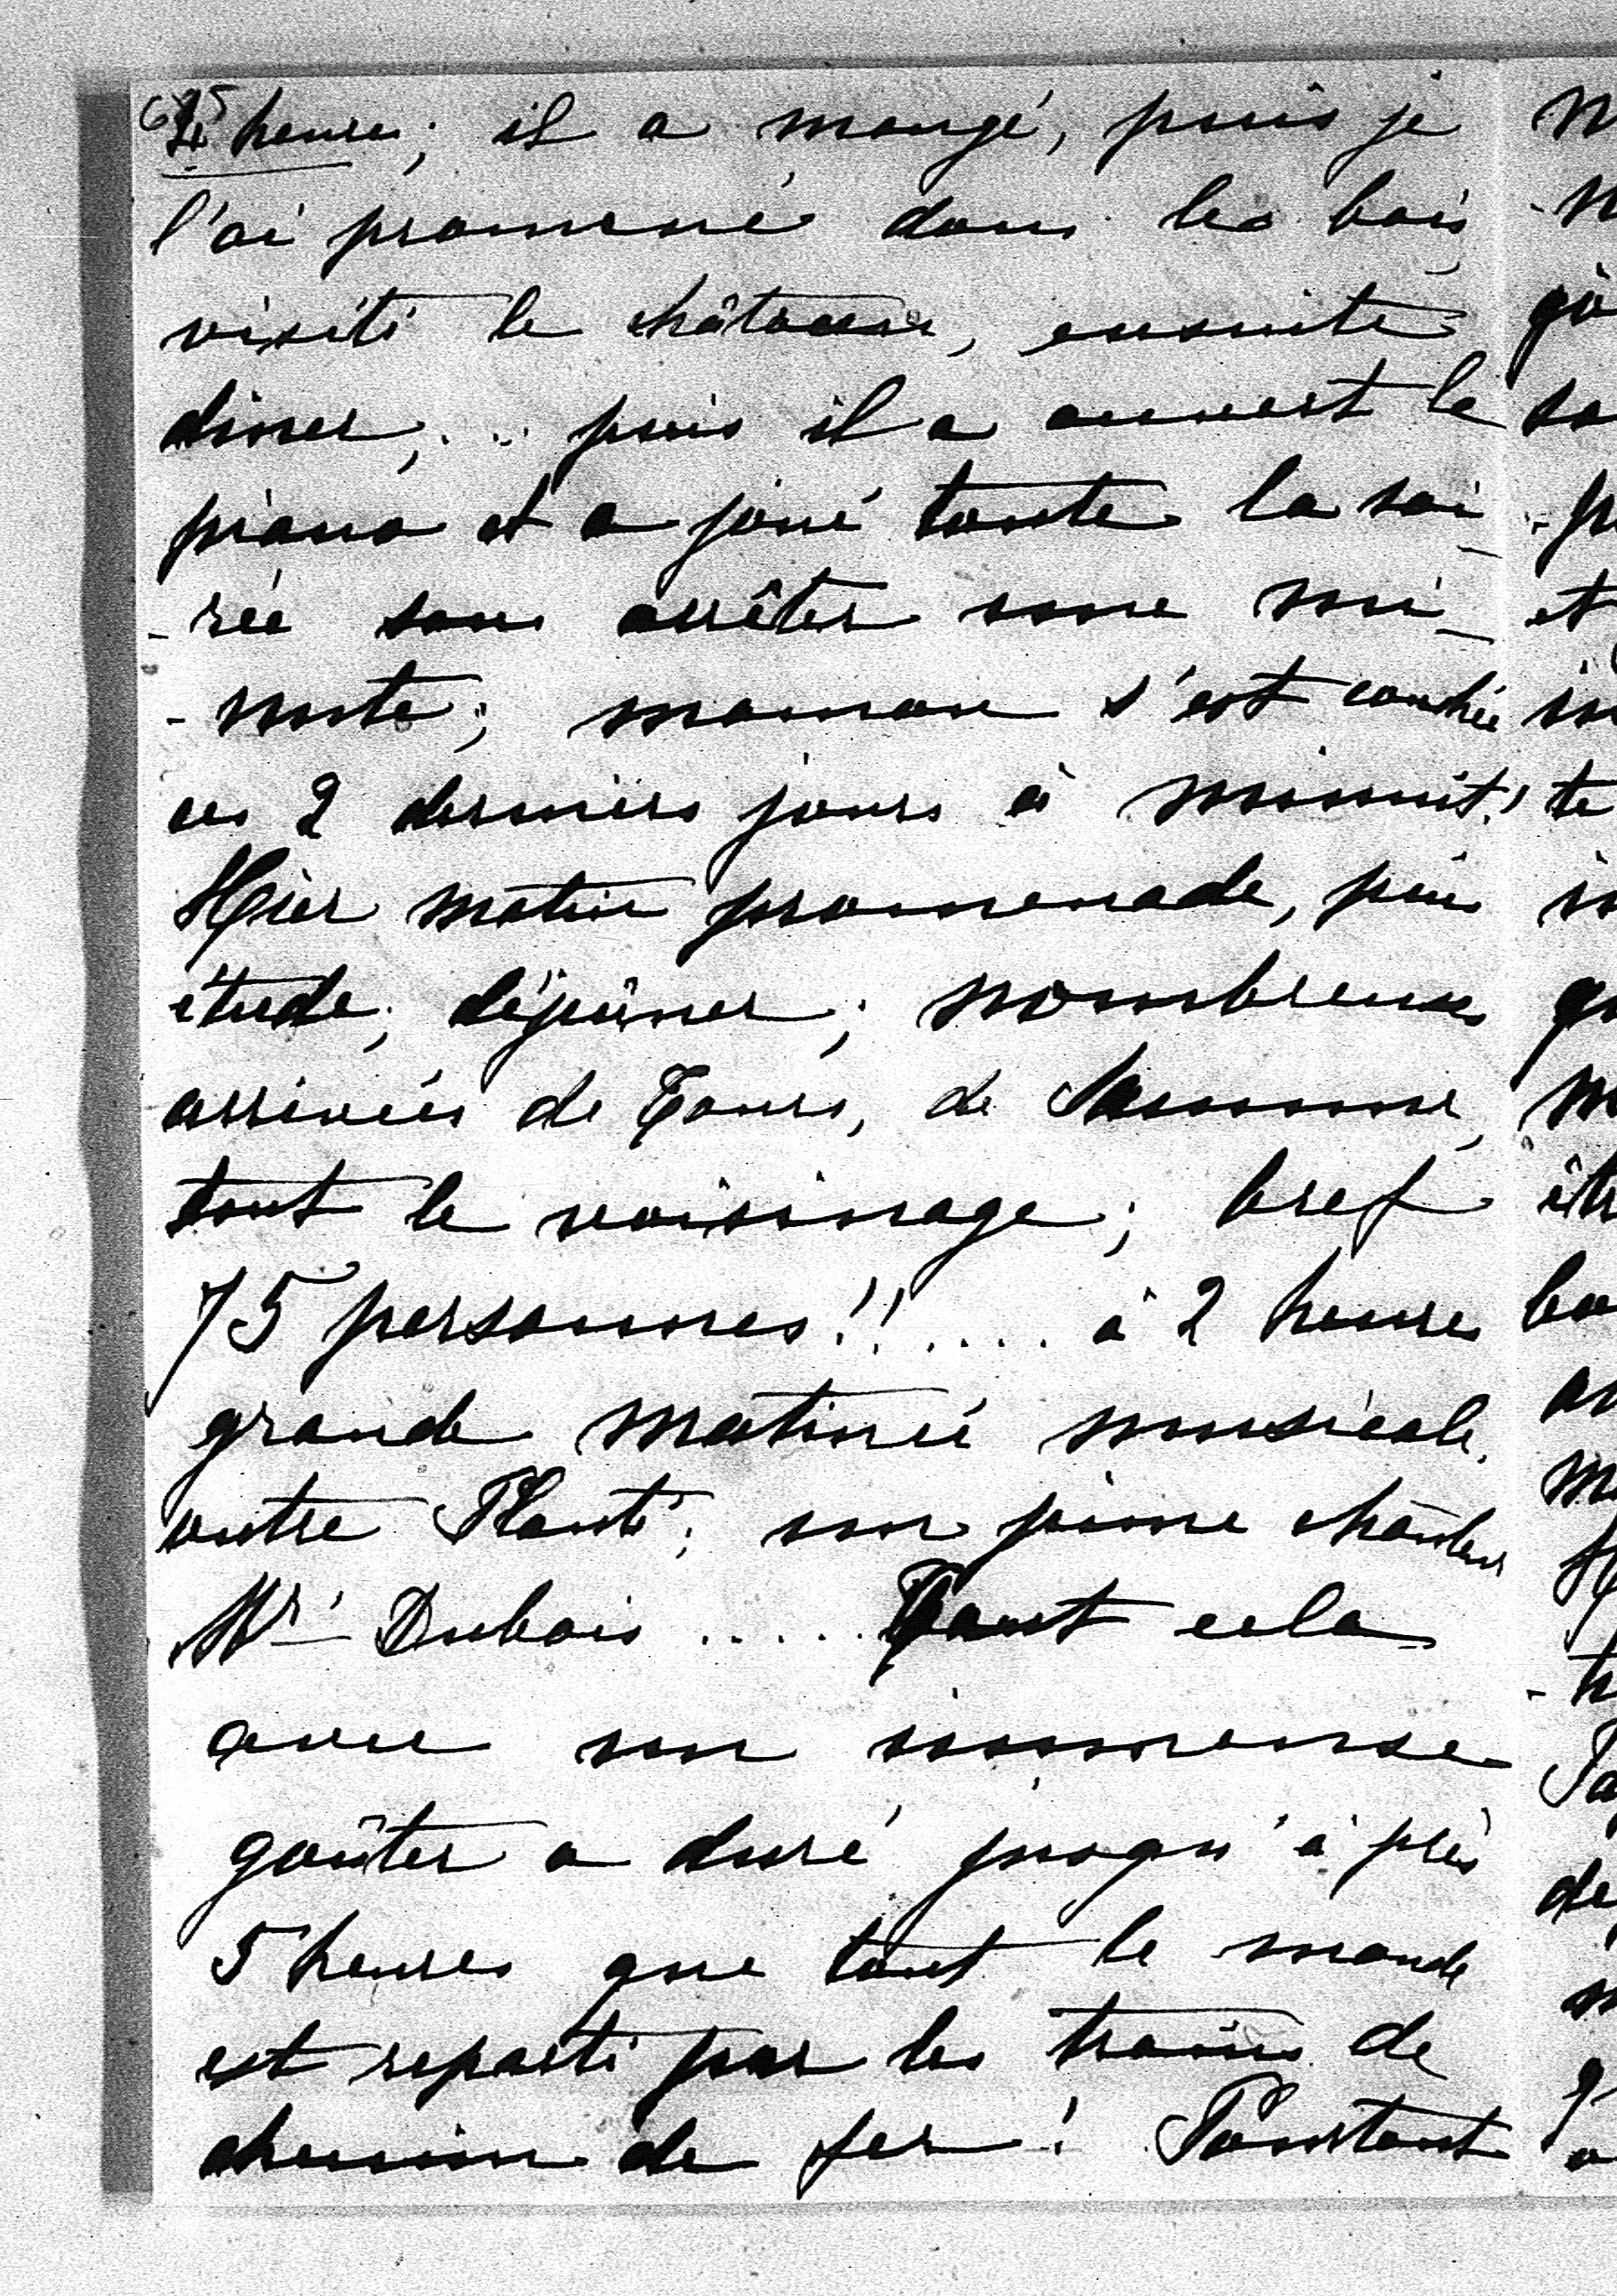 4 heures; il a mangé, puis je
l'ai promené dans les bois,
visité le château, ensuite
diner, .. puis il a ouvert le
piano et a joué toute la soi-
-rée sans arrêter une mi-
-nute; maman s'est couchée
ces 2 derniers jours à minuit!
Hier matin promenade, puis
étude; déjeûner; nombreuses
arrivées de Tours, de Saumur,
tout le voisinage; bref
75 personnes!! ..... à 2 heures
grande matinée musicale,
outre Planté; un jeune chanteur
Mr Dubois ..... Tout cela
avec un immense
goûter a duré jusqu'à près
5 heures que tout le monde
est reparti par les trains de
chemin de fer! Pourtant